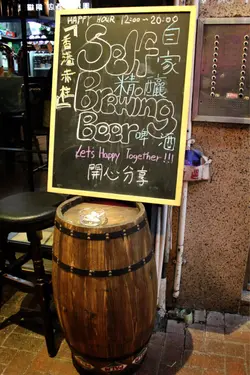 HAPPY HOUR 12:00~20:00
「香港赤柱」
Self 自家
Brewing 精釀
Beer 啤酒
Let's Happy Together!!!
開心分享